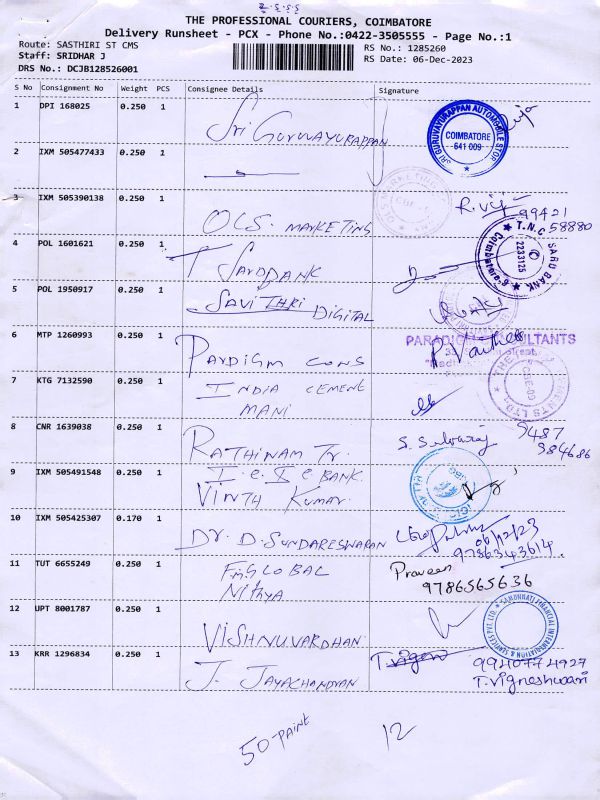 THE PROFESSIONAL COURIERS, COIMBATORE
Delivery Runsheet - PCX - Phone No.:0422-3505555 - Page No.:1
Route: SASTHIRI ST CMS
RS No.: 1285260
Staff: SRIDHAR J
RS Date: 06-Dec-2023
DRS No.: DCJB128526001
S No Consignment No Weight PCS Consignee Details Signature
1 DPI 168025 0.250 1
Sri Guruvayurappan
SRI GURUVAYURAPPAN AUTOMOBILE STOP
COIMBATORE
641 009
2 IXM 505477433 0.250 1
3 IXM 505390138 0.250 1
OLS MARKETING
R. Viji 99421
58880
4 POL 1601621 0.250 1
SARDBANK
T.N.C.
SARU BANK
2233125
Coimbatore-9
5 POL 1950917 0.250 1
SAVITHRI DIGITAL
6 MTP 1260993 0.250 1
PARDIGM CONS
PARADIGM CONSULTANTS
7 KTG 7132590 0.250 1
INDIA CEMENT
MANI
8 CNR 1639038 0.250 1
RATHINAM Tr.
S. Selvaraj 9487
984686
9 IXM 505491548 0.250 1
I.C.I.C BANK.
VINTH KUMAR.
10 IXM 505425307 0.170 1
DR. D. SUNDARESWARAN
06/12/23
9786343614.
11 TUT 6655249 0.250 1
FMGLOBAL
Nithya
Praveen
9786565636
12 UPT 8001787 0.250 1
VISHNUVARDHAN
13 KRR 1296834 0.250 1
J. JAYACHANDRAN
9940774927
T. Vigneshwari
50-PAINT
12